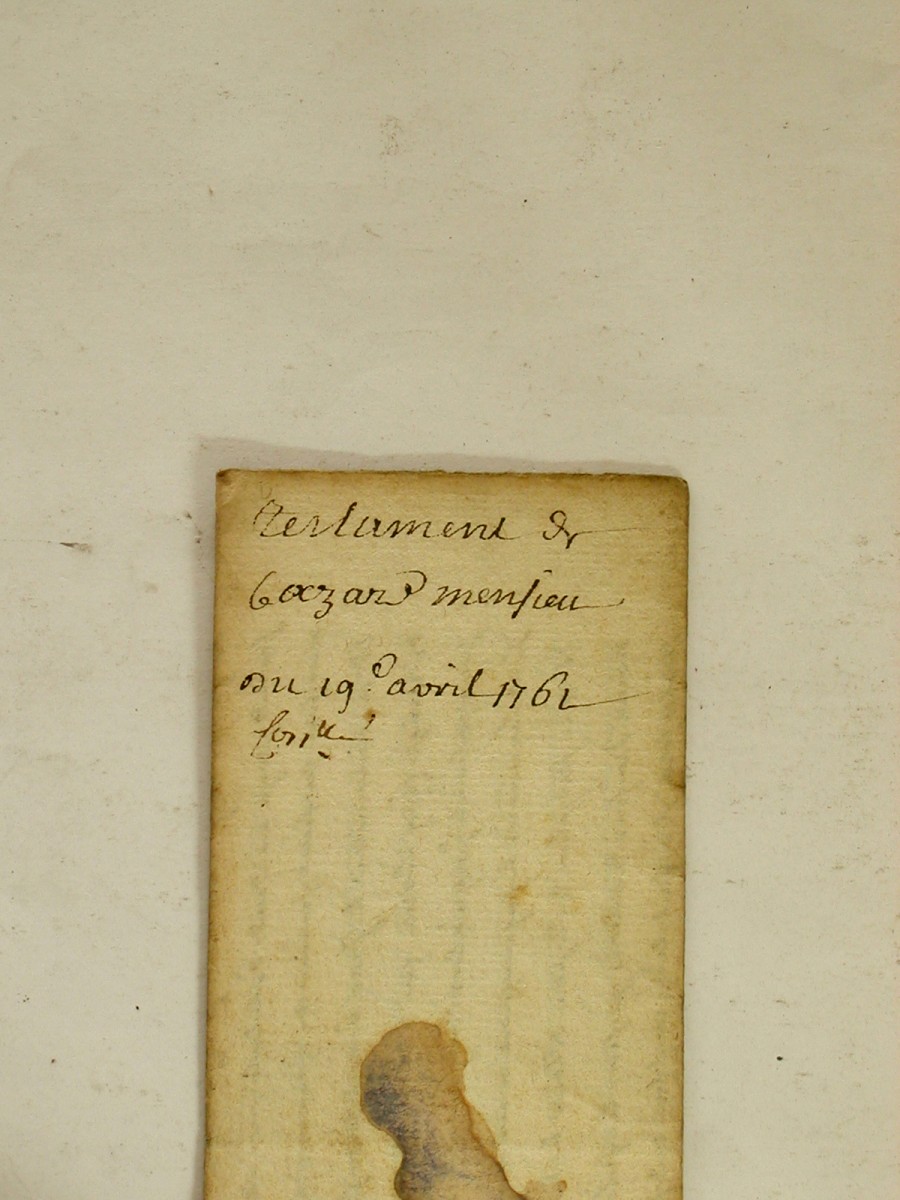 testament de
Cazard mensieu
du 19e avril 1761